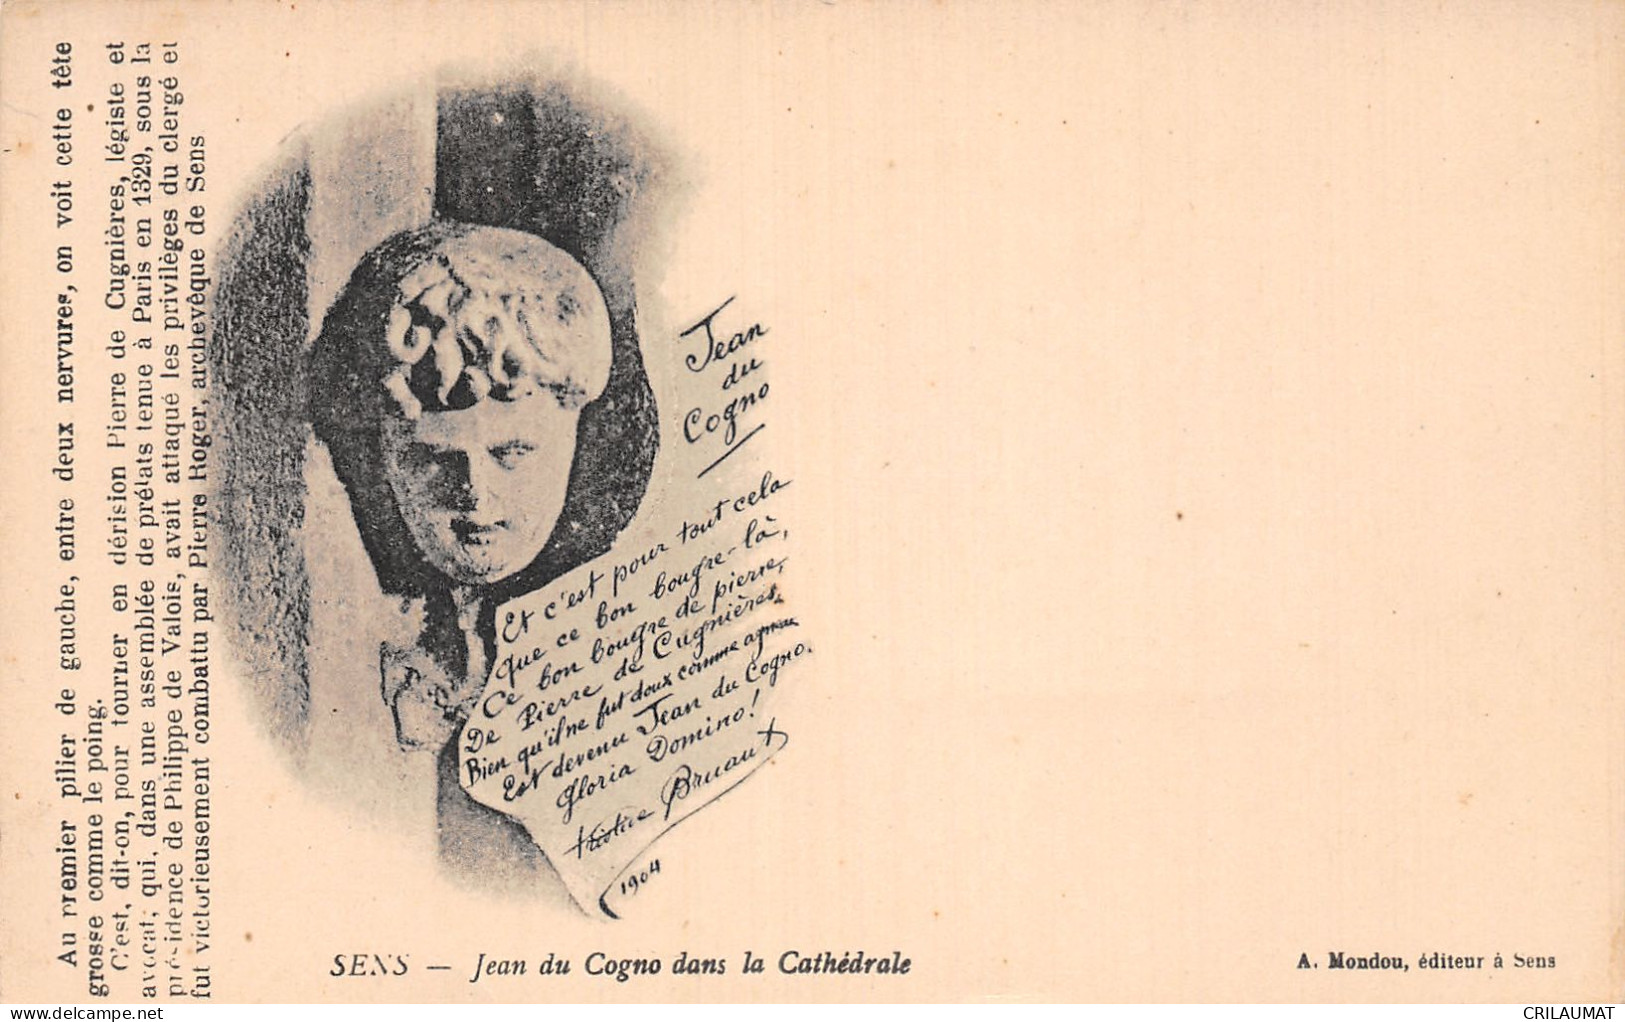 Au premier pilier de gauche, entre deux nervures, on voit cette tête
grosse comme le poing.
C'est, dit-on, pour tourner en dérision Pierre de Cugnières, légiste et
avocat; qui, dans une assemblée de prélats tenue à Paris en 1329, sous la
présidence de Philippe de Valois, avait attaqué les privilèges du clergé et
fut victorieusement combattu par Pierre Roger, archevêque de Sens
Jean
du
Cogno
Et c'est pour tout cela
Que ce bon bougre-là,
Ce bon bougre de pierre,
De Pierre de Cugnières,
Bien qu'il ne fut doux comme agneau
Est devenu Jean du Cogno.
Gloria Domino!
Aristide Bruant
1904
SENS — Jean du Cogno dans la Cathédrale
A. Mondou, éditeur à Sens
CRILAUMAT
delcampe.net